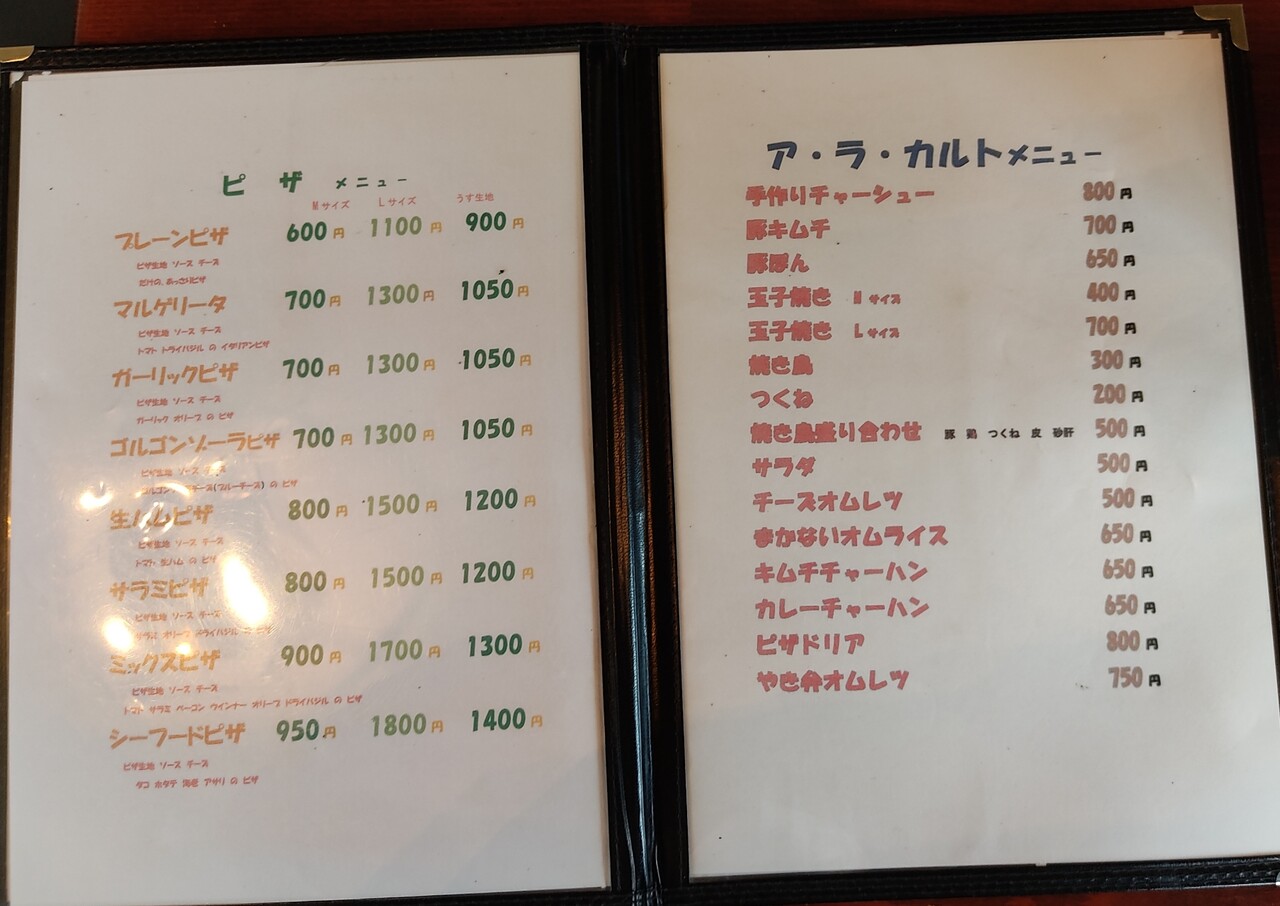 ピ ザ メニュー
Mサイズ Lサイズ うす生地
プレーンピザ 600円 1100円 900円
ピザ生地 ソース チーズ
だけの、あっさりピザ
マルゲリータ 700円 1300円 1050円
ピザ生地 ソース チーズ
トマト ドライバジル の イタリアンピザ
ガーリックピザ 700円 1300円 1050円
ピザ生地 ソース チーズ
ガーリック オリーブ の ピザ
ゴルゴンゾーラピザ 700円 1300円 1050円
ピザ生地 ソース チーズ
チーズ(ブルーチーズ) の ピザ
生ハムピザ 800円 1500円 1200円
ピザ生地 ソース チーズ
トマト 生ハム の ピザ
サラミピザ 800円 1500円 1200円
ピザ生地 ソース チーズ
サラミ オリーブ ドライバジル の ピザ
ミックスピザ 900円 1700円 1300円
ピザ生地 ソース チーズ
トマト サラミ ベーコン ウインナー オリーブ ドライバジル の ピザ
シーフードピザ 950円 1800円 1400円
ピザ生地 ソース チーズ
タコ ホタテ 海老 アサリ の ピザ
ア・ラ・カルトメニュー
手作りチャーシュー 800円
豚キムチ 700円
豚ぽん 650円
玉子焼き Mサイズ 400円
玉子焼き Lサイズ 700円
焼き鳥 300円
つくね 200円
焼き鳥盛り合わせ 豚 鶏 つくね 皮 砂肝 500円
サラダ 500円
チーズオムレツ 500円
まかないオムライス 650円
キムチチャーハン 650円
カレーチャーハン 650円
ピザドリア 800円
やき弁オムレツ 750円